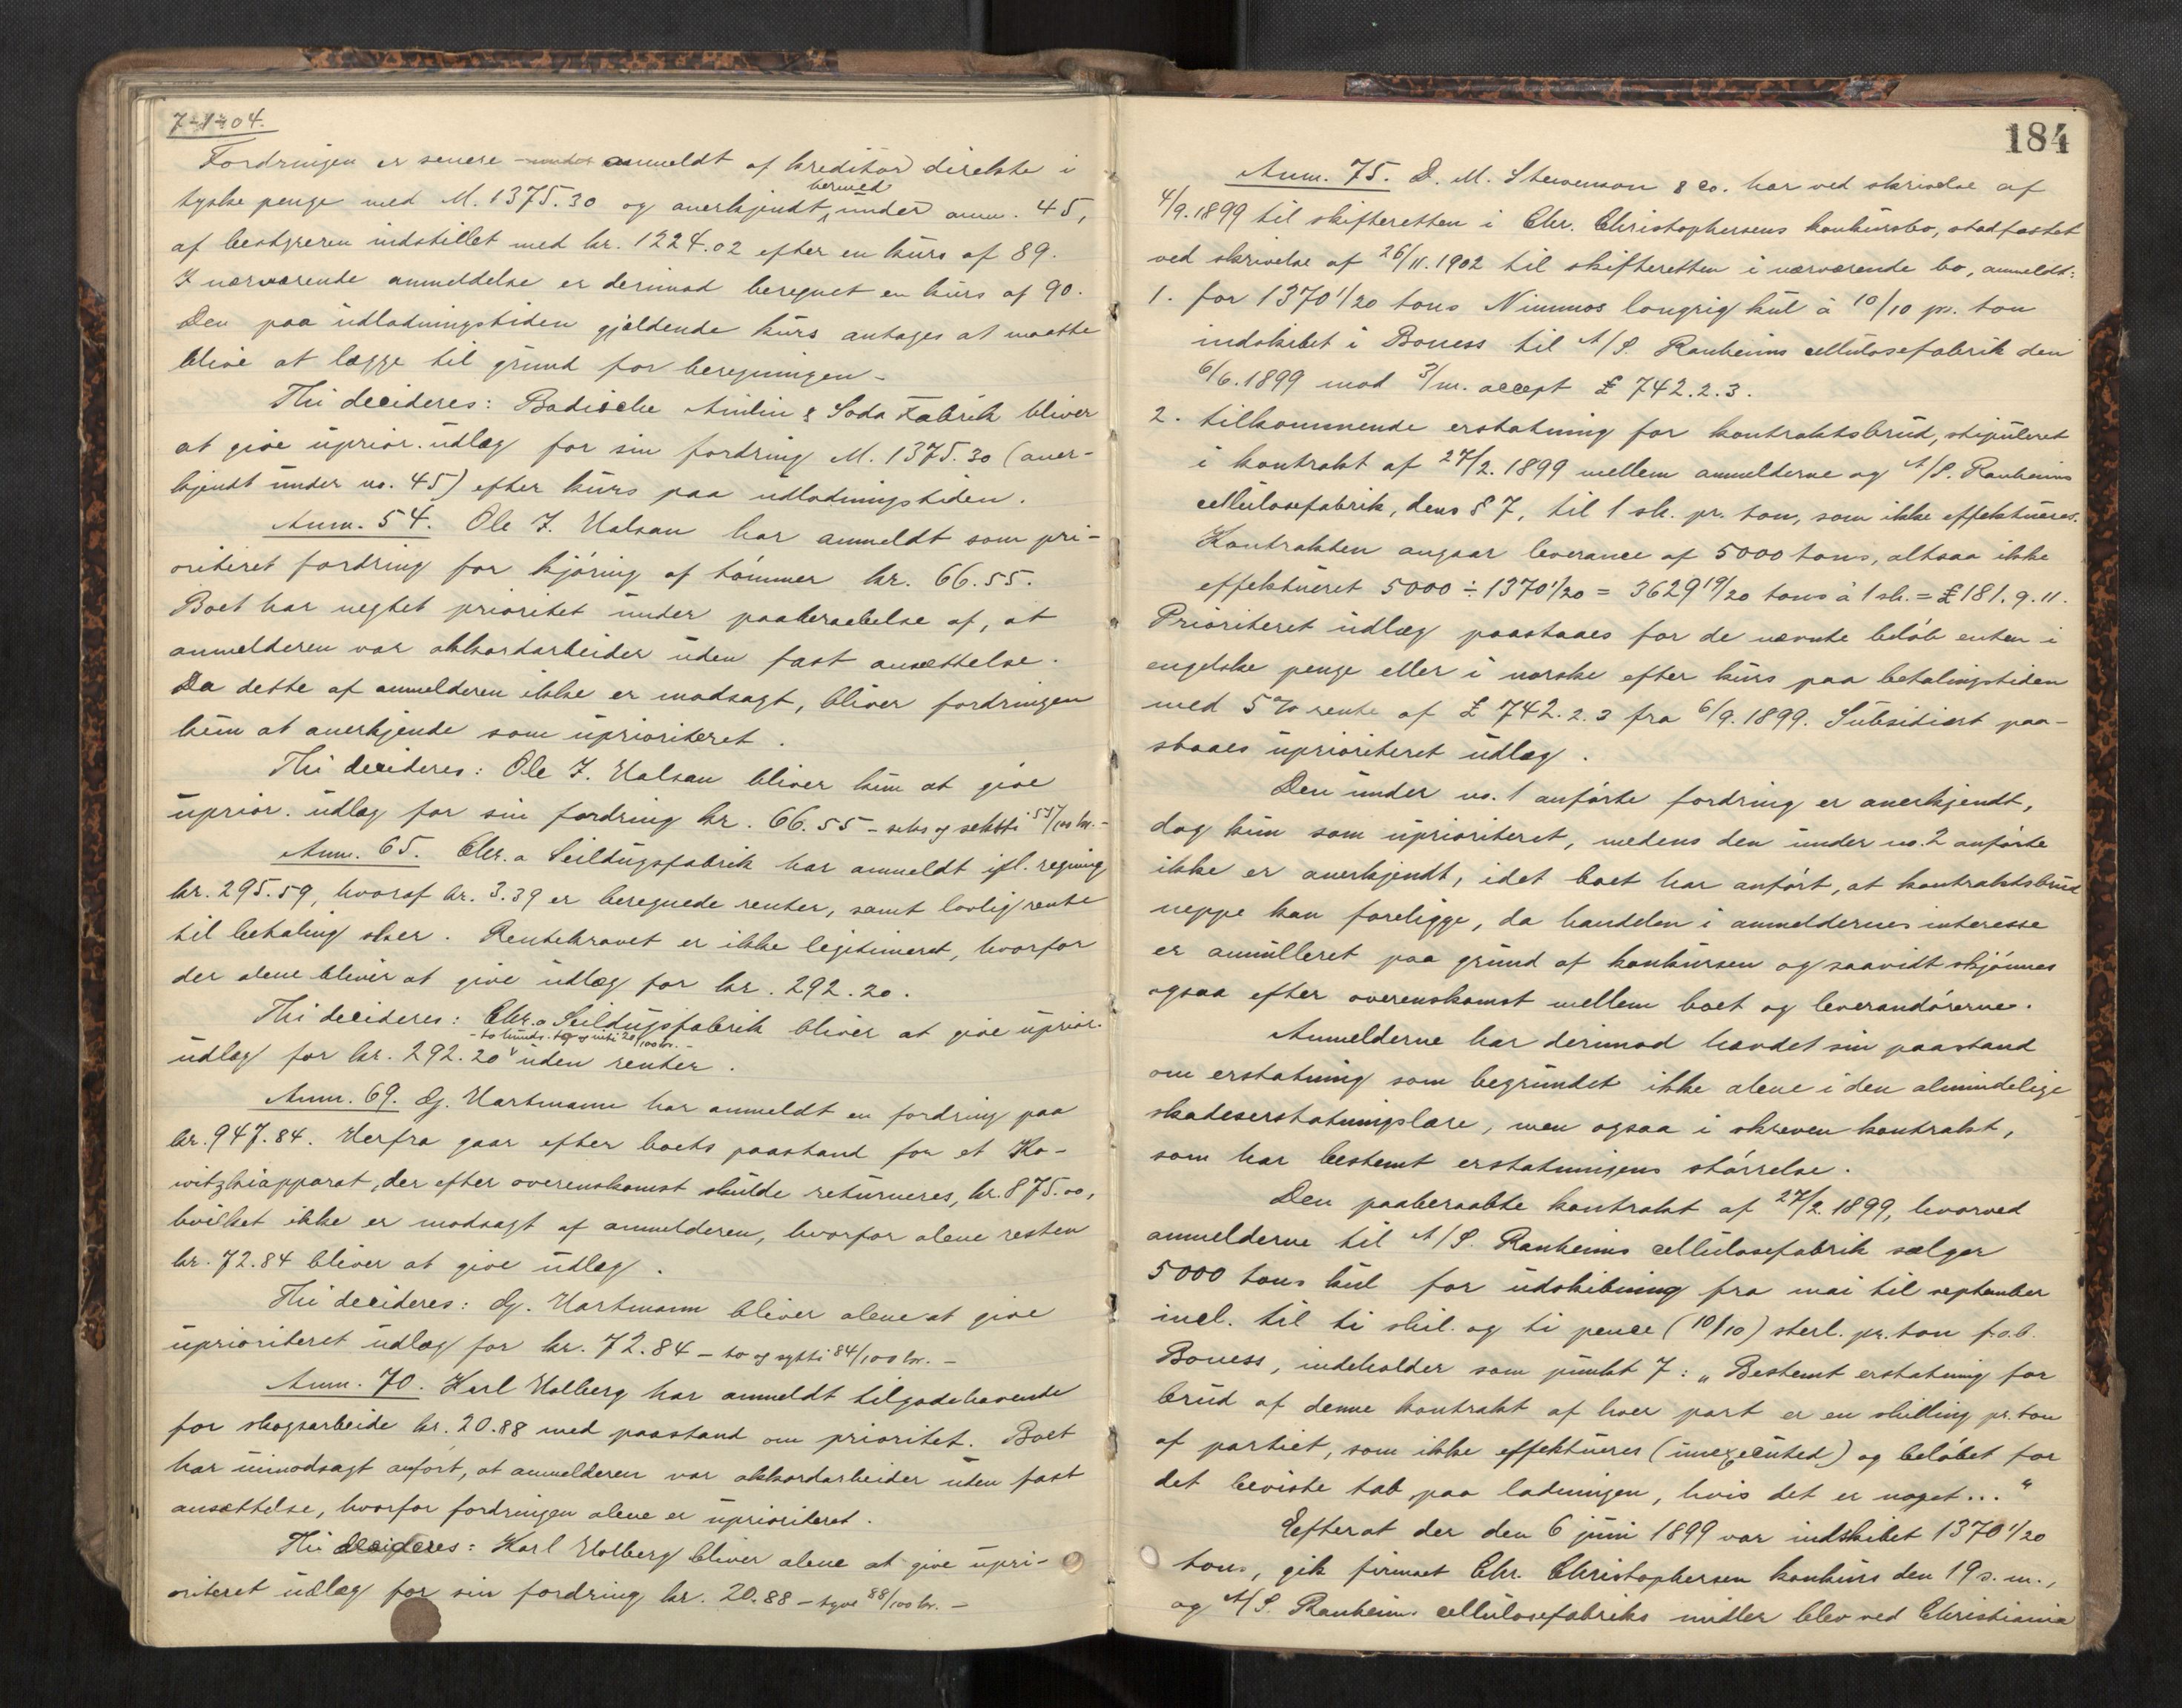 7-1-04.
Fordringen er senere anmeldt af kreditor direkte i
hermed
tyske penge med M. 1375.30 og anerkjendt under anm. 45,
af bestyreren indstillet med kr. 1224.02 efter en kurs af 89.
I nærværende anmeldelse er derimod beregnet en kurs af 90.
Den paa udlodningstiden gjældende kurs antages at maatte
blive at lægge til grund for beregningen –
Thi decideres: Badische Anilin & Soda Fabrik bliver
at give uprior. udlæg for sin fordring M. 1375.30 (aner-
kjendt under no. 45) efter kurs paa udlodningstiden.
Anm. 54. Ole J. Halsan har anmeldt som pri-
oriteret fordring for kjøring af tømmer kr. 66.55.
Boet har negtet prioritet under paaberaabelse af, at
anmelderen var akkordarbeider uden fast ansættelse.
Da dette af anmelderen ikke er modsagt, bliver fordringen
kun at anerkjende som uprioriteret.
Thi decideres: Ole J. Halsan bliver kun at give
uprior. udlæg for sin fordring kr. 66.55 – seks og seksti 55/100 kr. –
Anm. 65. Chr.a Seildugsfabrik har anmeldt ifl. regning
kr. 295.59, hvoraf kr. 3.39 er beregnede renter, samt lovlig rente
til betaling sker. Rentekravet er ikke legitimeret, hvorfor
der alene bliver at give udlæg for kr. 292.20.
Thi decideres: Chr.a Seildugsfabrik bliver at give uprior.
– to hundr. to og niti 20/100 kr. –
udlæg for kr. 292.20 uden renter.
Anm. 69. Hj. Hartmann har anmeldt en fordring paa
kr. 947.84. Herfra gaar efter boets paastand for et Ko-
witzkiapparat, der efter overenskomst skulde returneres, kr. 875.00,
hvilket ikke er modsagt af anmelderen, hvorfor alene resten
kr. 72.84 bliver at give udlæg.
Thi decideres: Hj. Hartmann bliver alene at give
uprioriteret udlæg for kr. 72.84 – to og sytti 84/100 kr. –
Anm. 70. Karl Holberg har anmeldt tilgodehavende
for skogsarbeide kr. 20.88 med paastand om prioritet. Boet
har uimodsagt anført, at anmelderen var akkordarbeider uden fast
ansættelse, hvorfor fordringen alene er uprioriteret.
Thi decideres: Karl Holberg bliver alene at give upri-
oriteret udlæg for sin fordring kr. 20.88 – tyve 88/100 kr. –
184
Anm. 75. D. M. Stevenson & Co. har ved skrivelse af
4/9. 1899 til skifteretten i Chr. Christophersens konkursbo, stadfæstet
ved skrivelse af 26/11. 1902 til skifteretten i nærværende bo, anmeldt:
1. for 1370 1/20 tons Nimmos longrig kul à 10/10 pr. ton
indskibet i Boness til A/S. Ranheims cellulosefabrik den
6/6. 1899 mod 3/m. accept £ 742.2.3.
2. tilkommende erstatning for kontraktsbrud, stipuleret
i kontrakt af 27/2. 1899 mellem anmelderne og A/S. Ranheims
cellulosefabrik, dens § 7, til 1 sh. pr. ton, som ikke effektueres.
Kontrakten angaar leverance af 5000 tons, altsaa ikke
effektueret 5000 ÷ 1370 1/20 = 3629 19/20 tons à 1 sh. = £ 181.9.11.
Prioriteret udlæg paastaaes for de nævnte beløb enten i
engelske penge eller i norske efter kurs paa betalingstiden
med 5 % rente af £ 742.2.3 fra 6/9. 1899. Subsidiært paa-
staaes uprioriteret udlæg.
Den under no. 1 anførte fordring er anerkjendt,
dog kun som uprioriteret, medens den under no. 2 anførte
ikke er anerkjendt, idet boet har anført, at kontraktsbrud
neppe kan foreligge, da handelen i anmeldernes interesse
er annulleret paa grund af konkursen og saavidt skjønnes
ogsaa efter overenskomst mellem boet og leverandørerne.
Anmelderne har derimod hævdet sin paastand
om erstatning som begrundet ikke alene i den almindelige
skadeserstatningslære, men ogsaa i skreven kontrakt,
som har bestemt erstatningens størrelse.
Den paaberaabte kontrakt af 27/2. 1899, hvorved
anmelderne til A/S. Ranheims cellulosefabrik sælger
5000 tons kul for udskibning fra mai til september
incl. til ti shil. og ti pence (10/10) sterl. pr. ton f.o.b.
Boness, indeholder som punkt 7: „Bestemt erstatning for
brud af denne kontrakt af hver part er en shilling pr. ton
af partiet, som ikke effektueres (unexecuted) og beløbet for
det beviste tab paa ladningen, hvis det er noget..."
Efterat der den 6 juni 1899 var indskibet 1370 1/20
tons, gik firmaet Chr. Christophersen konkurs den 19 s. m.,
og A/S. Ranheims cellulosefabriks midler blev ved Christiania